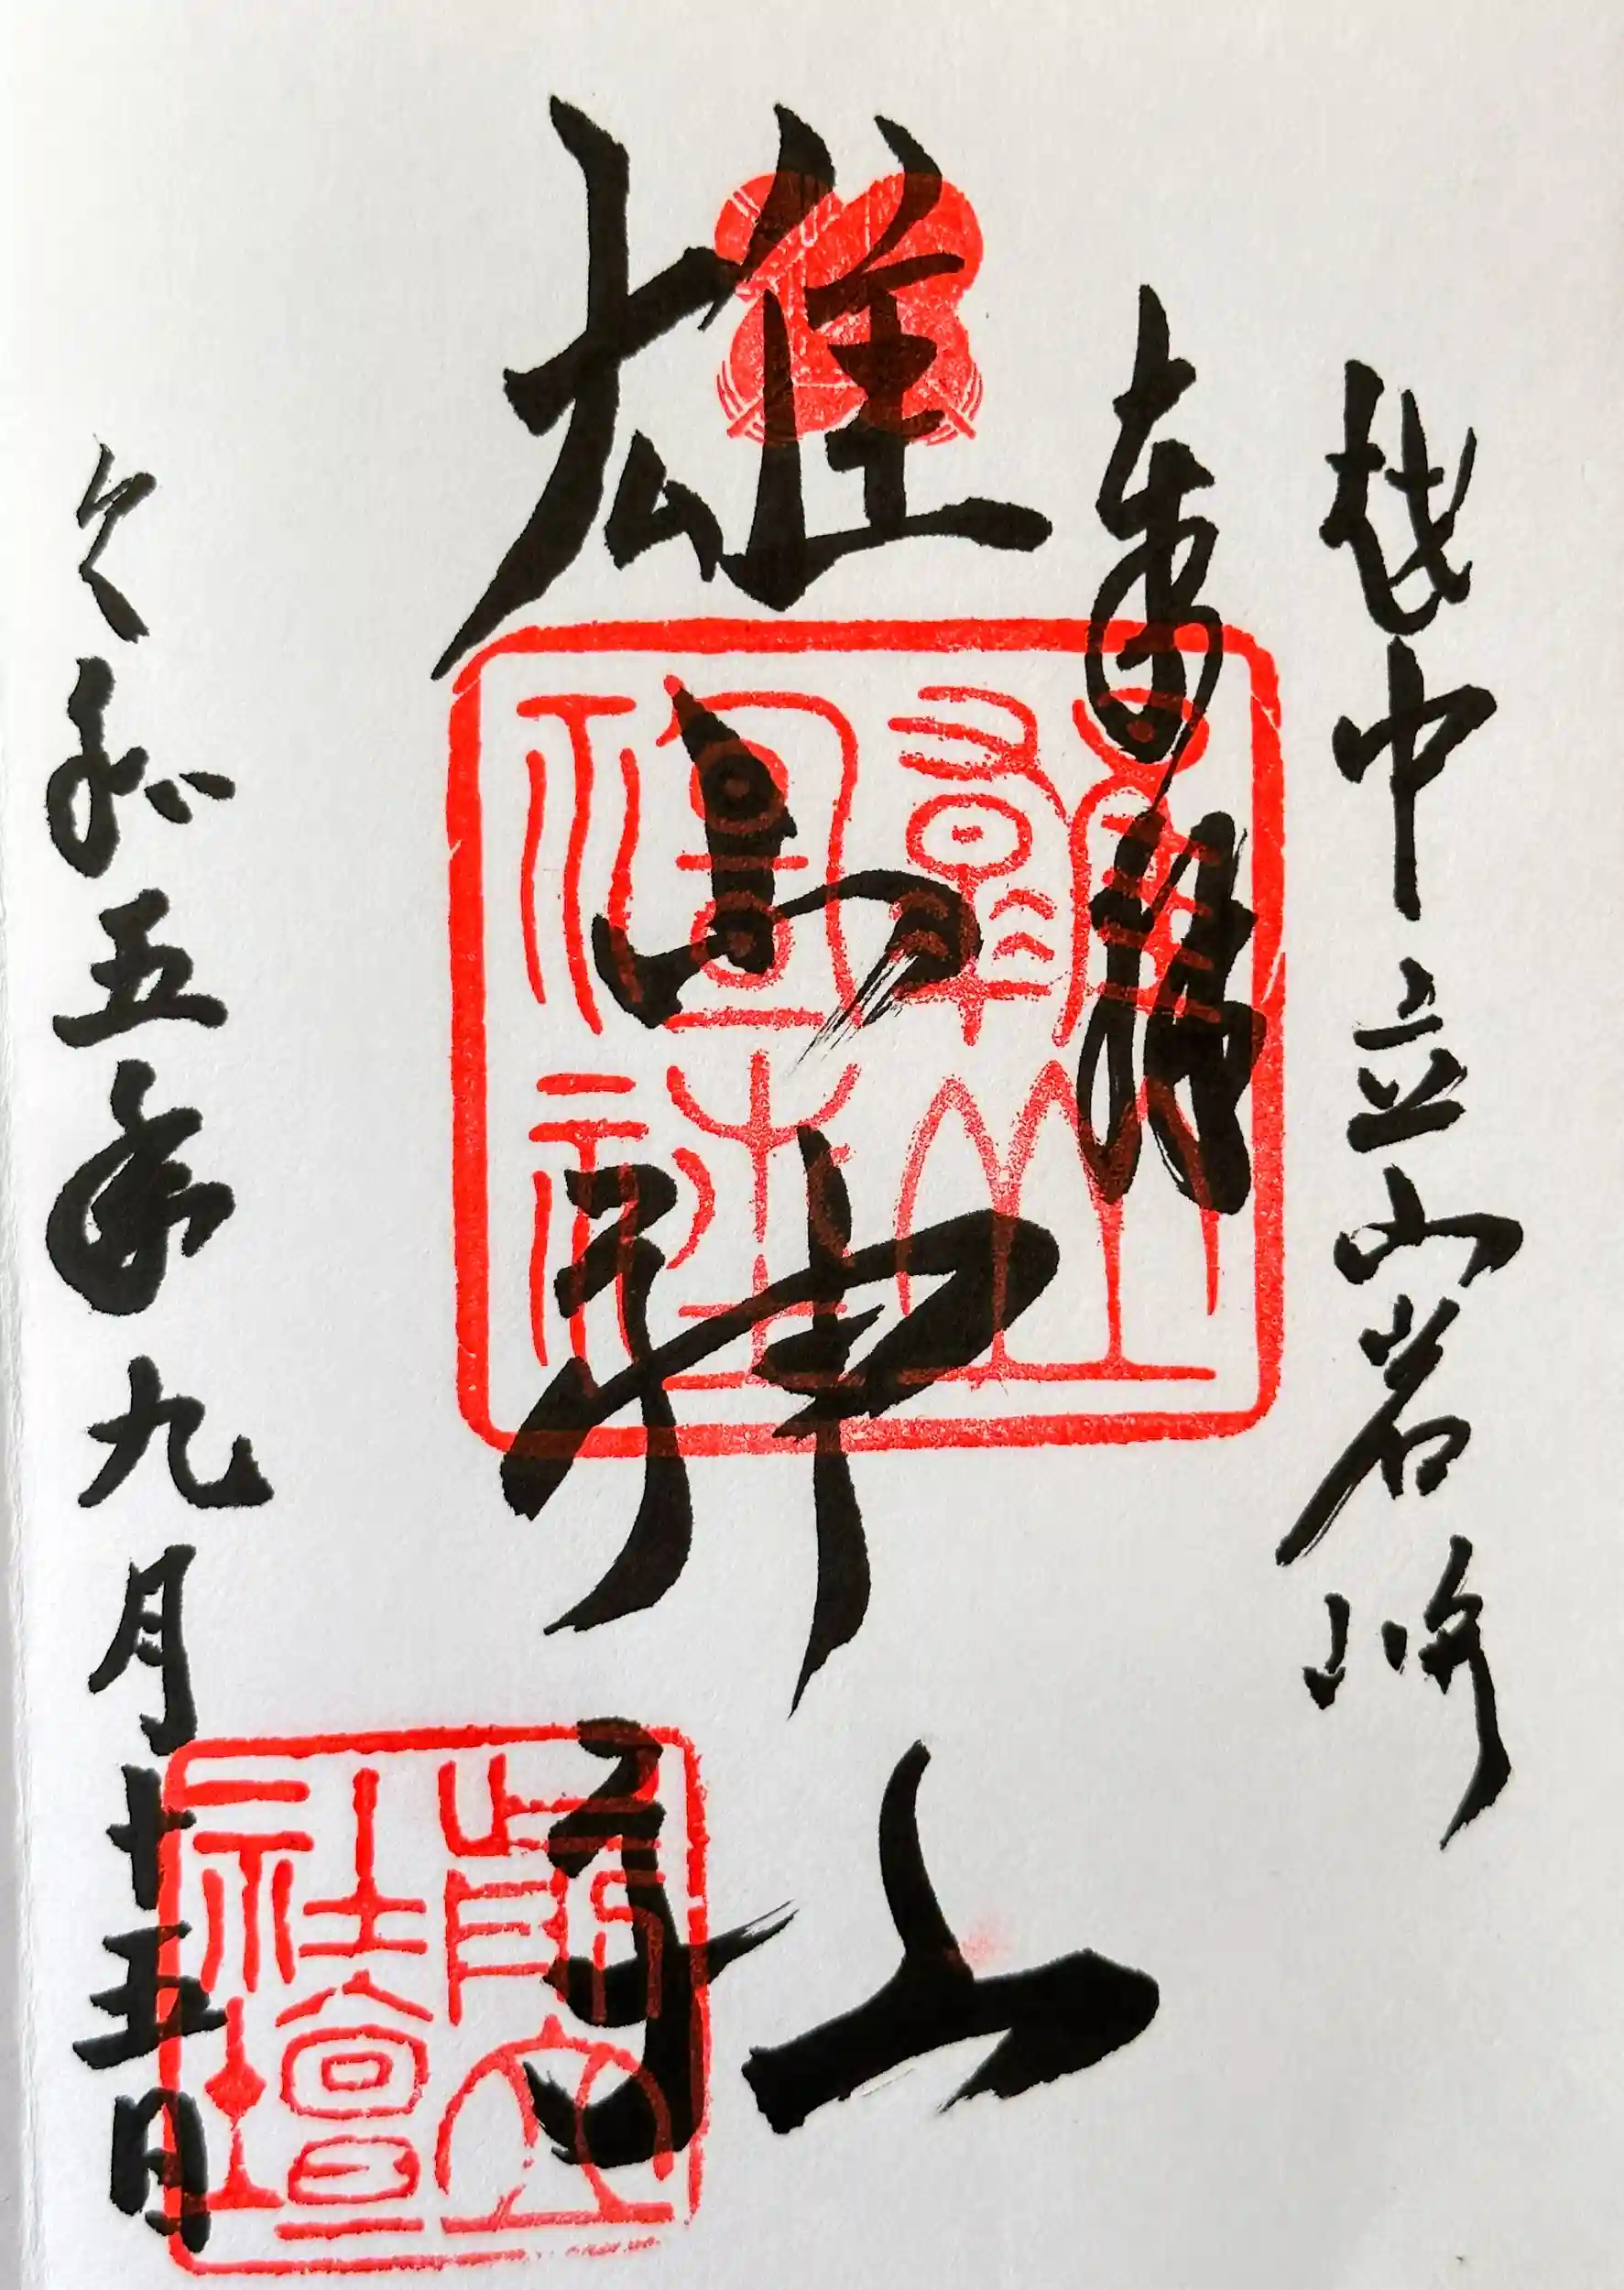 越中立山岩峅
奉拝
雄山神社
令和五年九月十五日
雄山
神社
前立
社壇